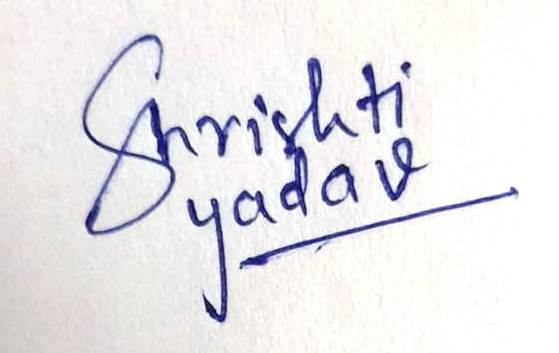 Shrishti
yadav